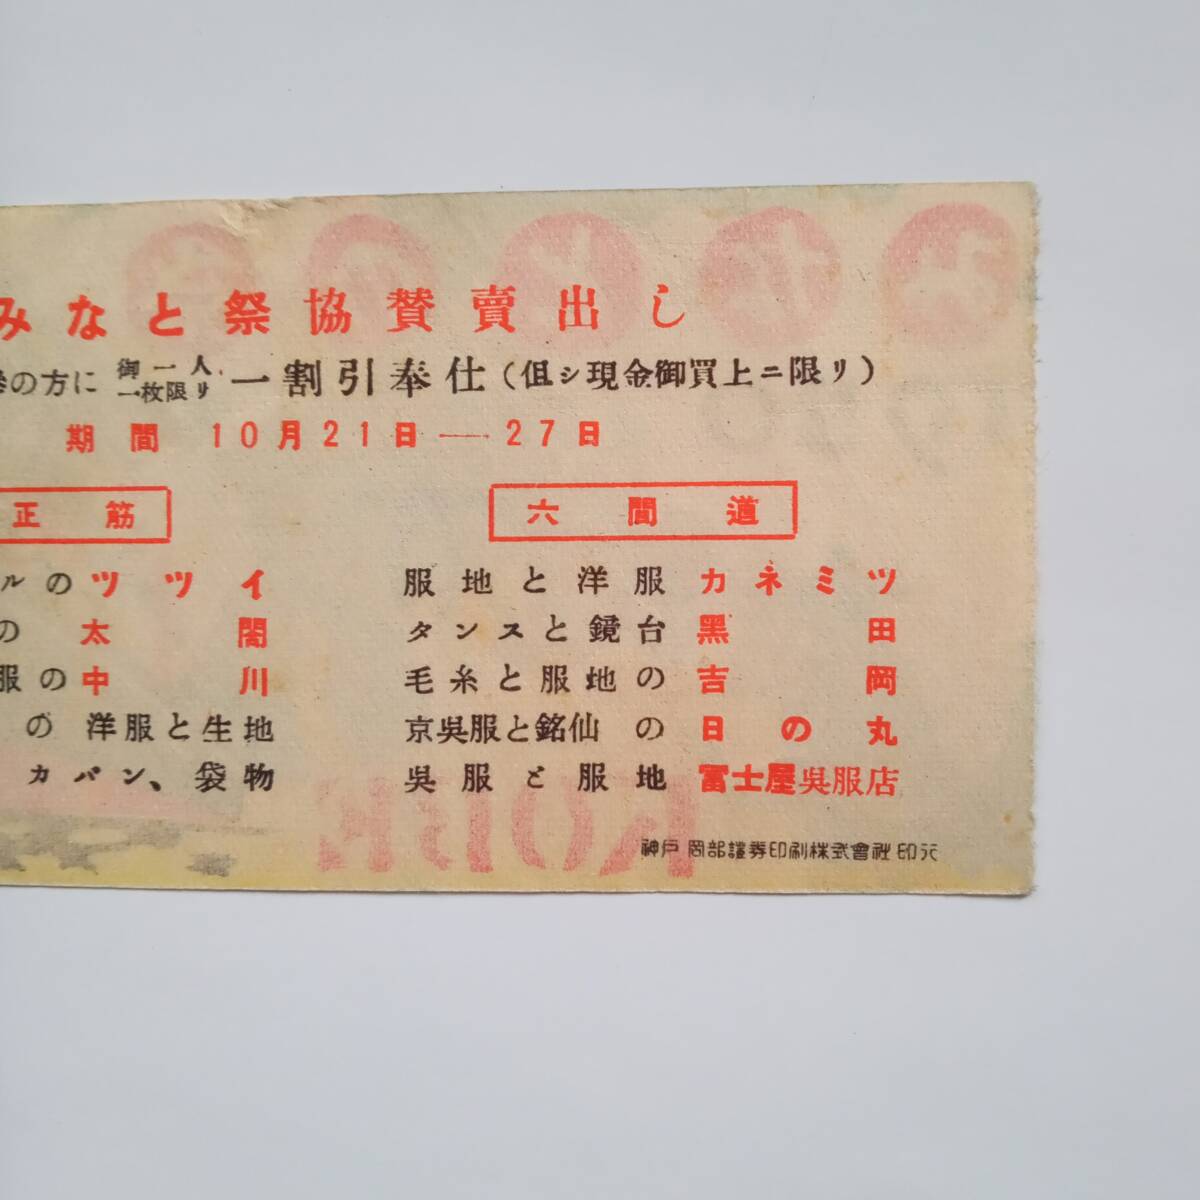 みなと祭協賛賣出し
券の方に 御一人一枚限リ 一割引奉仕(但シ現金御買上ニ限リ)
期間 10月21日―27日
正筋
ルのツツイ
の 太閤
服の中川
の 洋服と生地
カバン、袋物
六間道
服地と洋服 カネミツ
タンスと鏡台 黒田
毛糸と服地の 吉岡
京呉服と銘仙の 日の丸
呉服と服地 冨士屋呉服店
神戸 岡部證券印刷株式會社 印行
KOBE